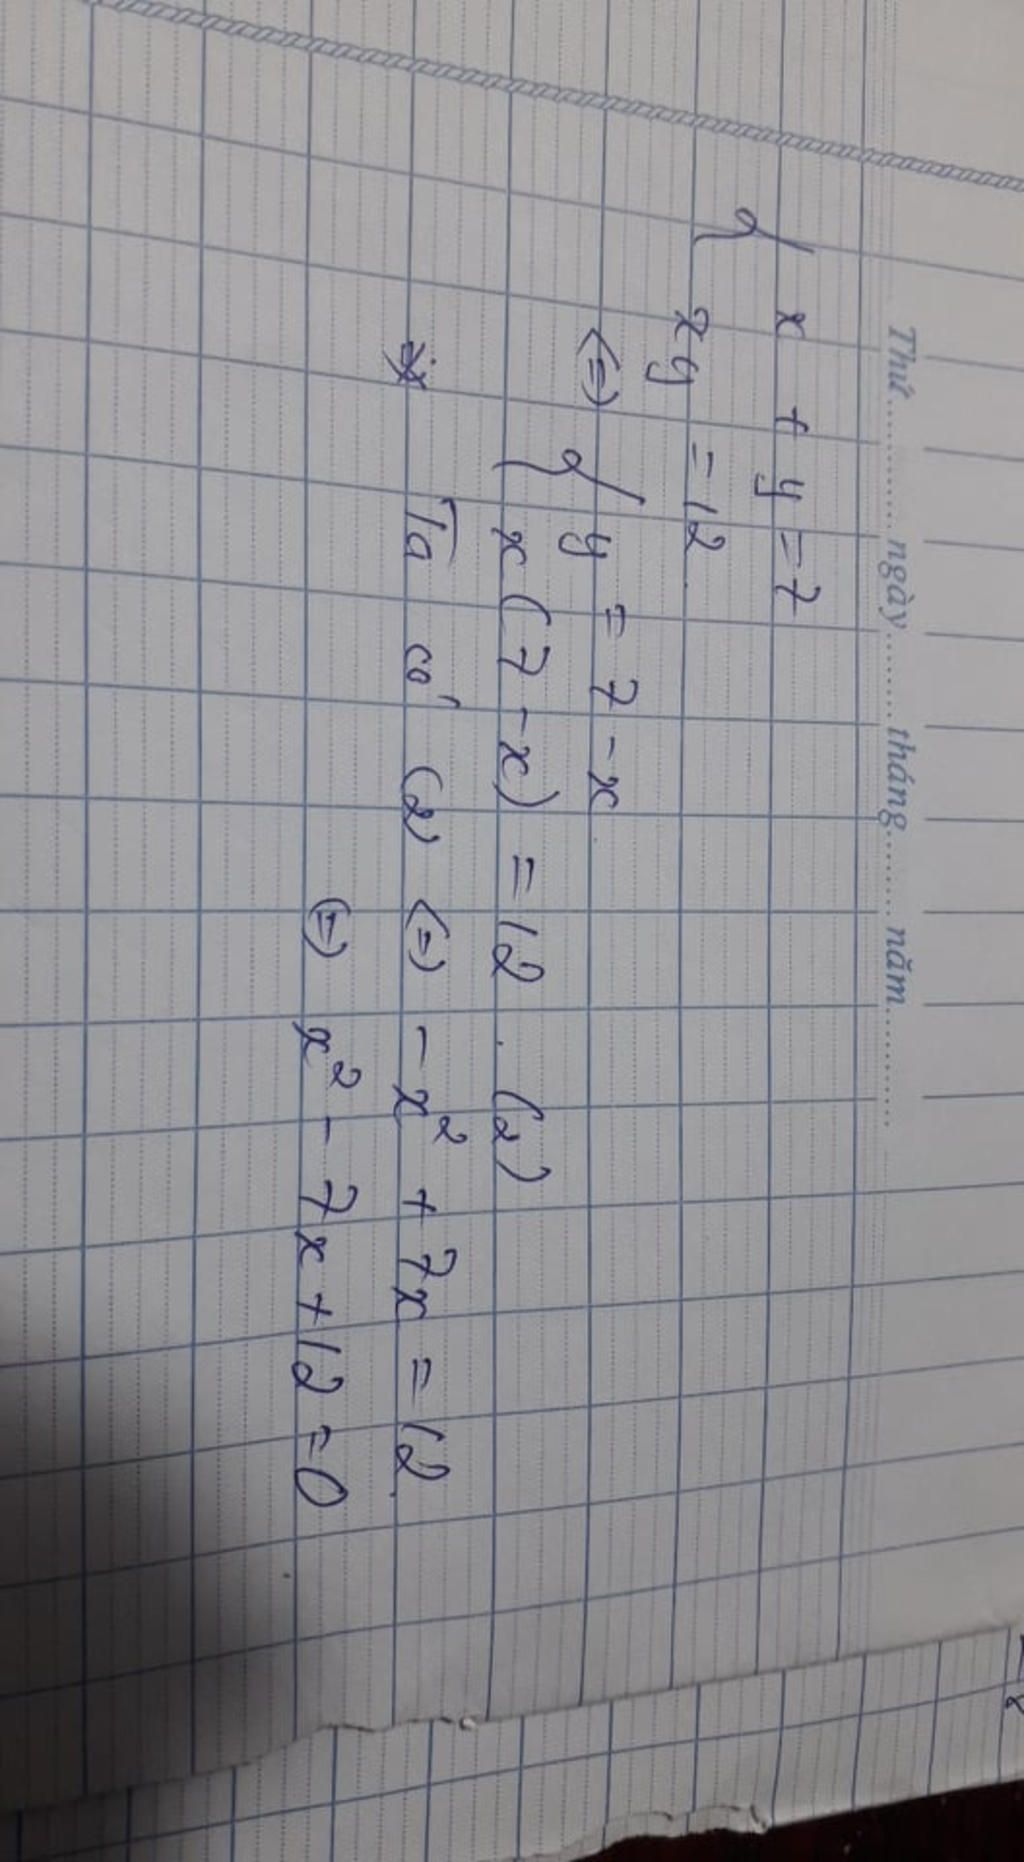 Thứ ........ ngày ........ tháng ........ năm ........
{ x + y = 7
xy = 12
<=> { y = 7 - x
x (7 - x) = 12 (2)
Ta có (2) <=> - x² + 7x = 12
<=> x² - 7x + 12 = 0